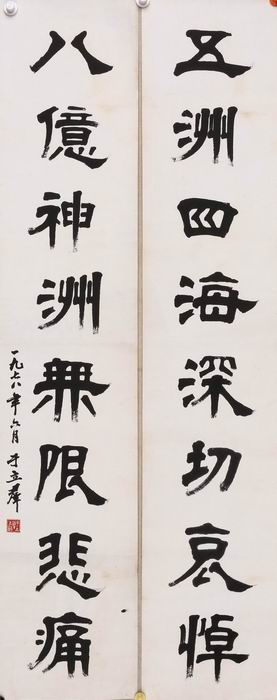 五洲四海深切哀悼
八億神洲無限悲痛
一九七八年六月于立群